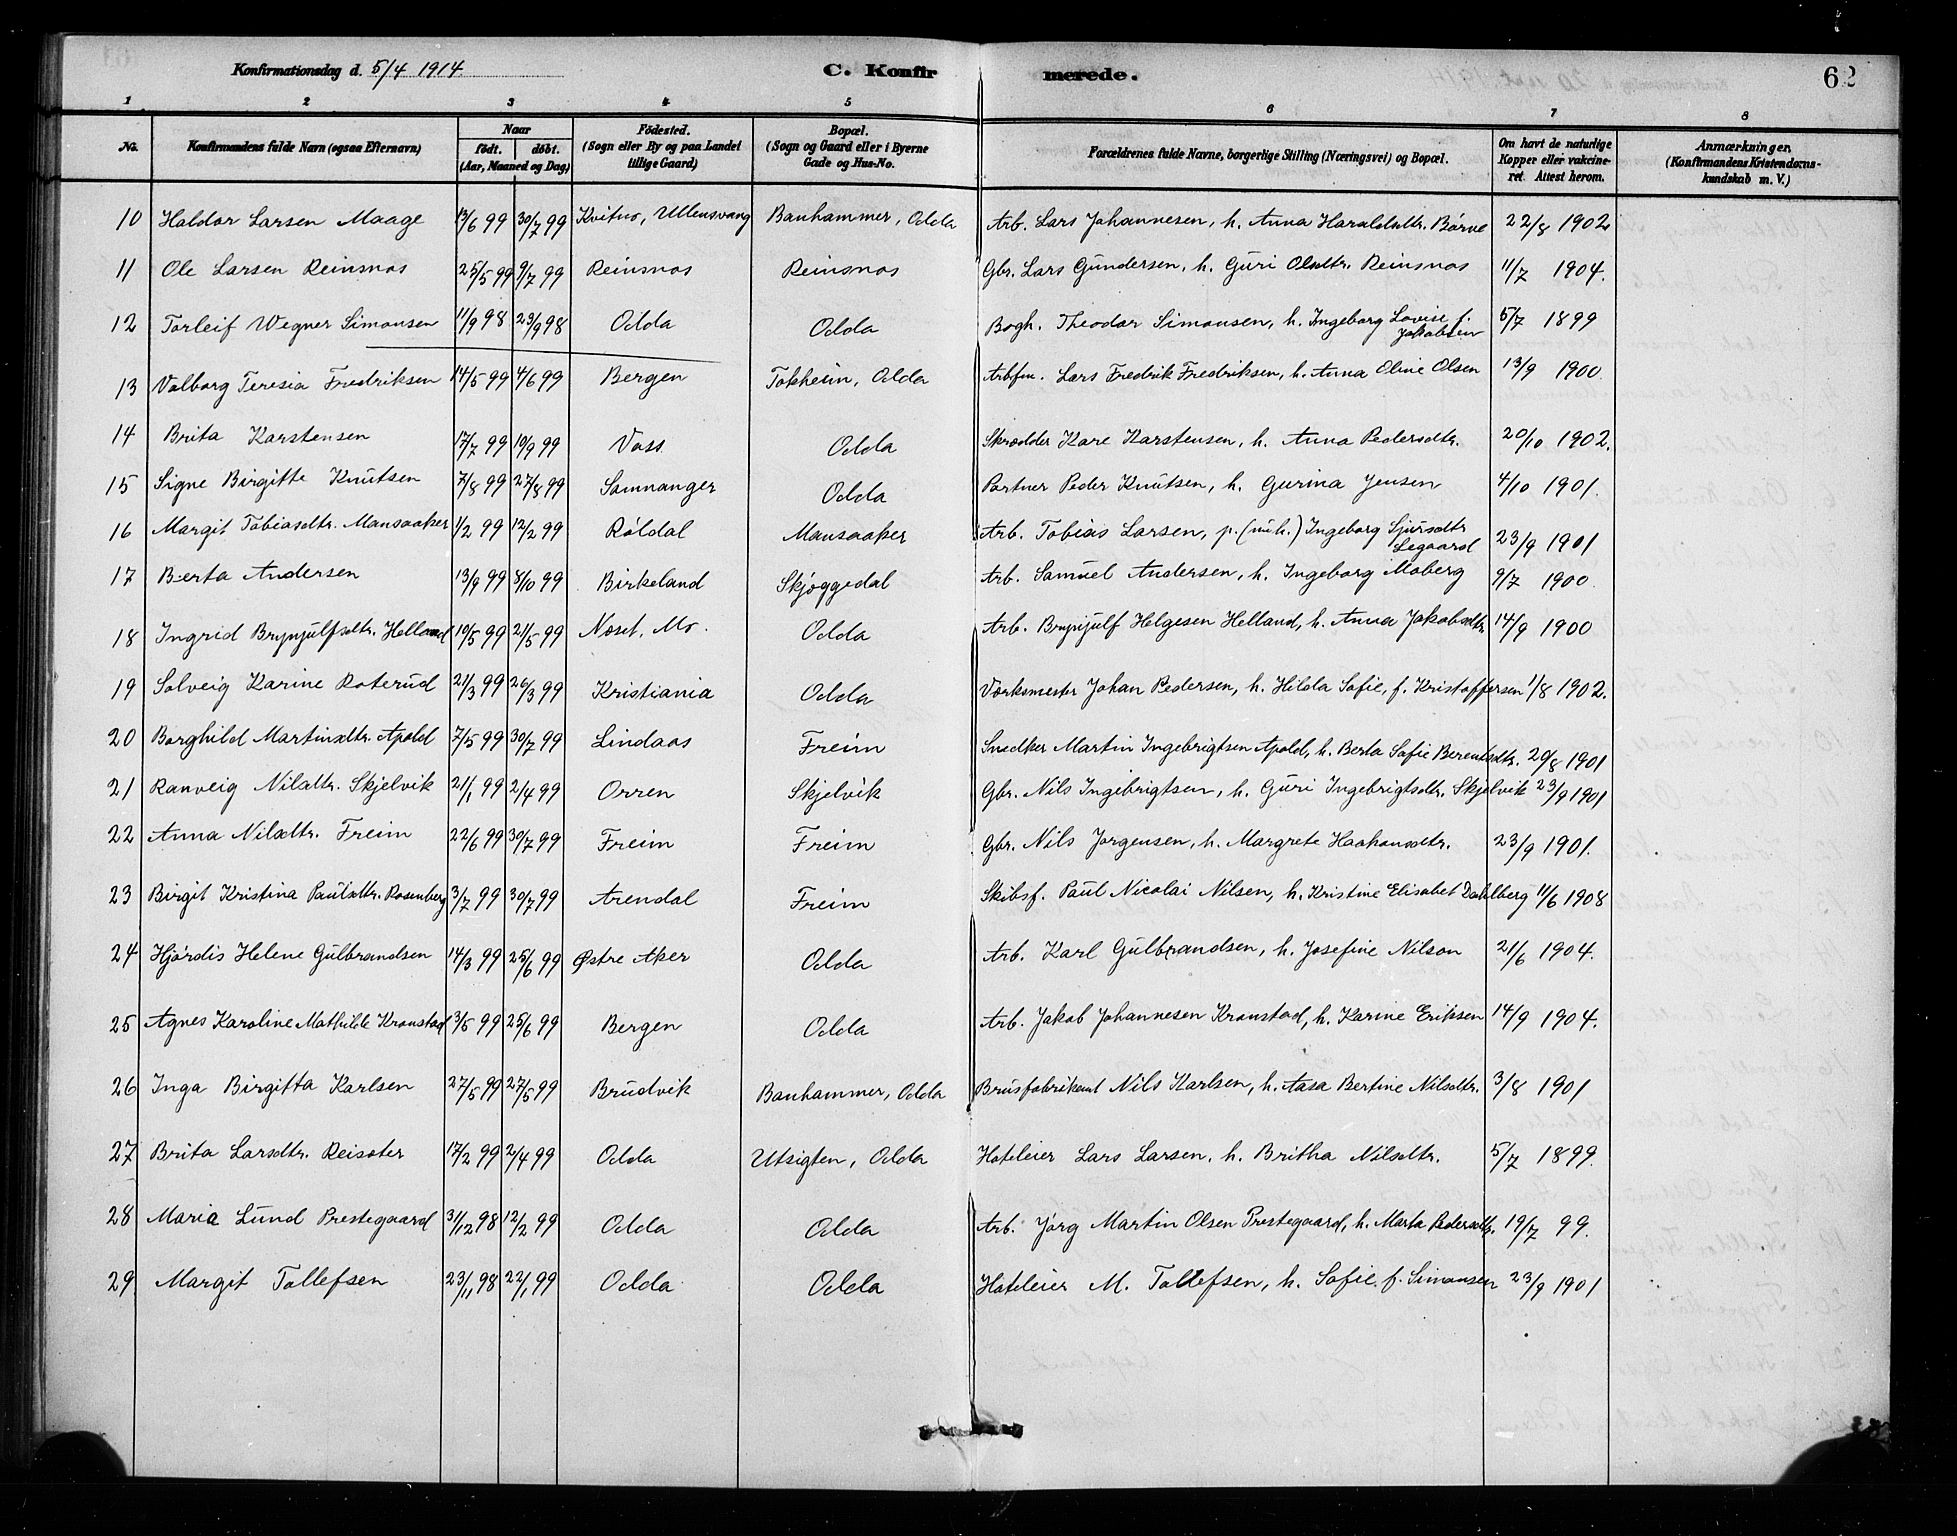 Konfirmationsdag d. 5/4 1914
C. Konfirmerede.
62
1 2 3 4 5 6 7 8
No.
Konfirmandens fulde Navn (ogsaa Efternavn)
Naar
födt. döbt.
(Aar, Maaned og Dag)
Födested.
(Sogn eller By og paa Landet
tillige Gaard)
Bopæl.
(Sogn og Gaard eller i Byerne
Gade og Hus-No.
Forældrenes fulde Navne, borgerlige Stilling (Næringsvei) og Bopæl.
Om havt de naturlige
Kopper eller vakcine-
ret Attest herom.
Anmærkninger.
(Konfirmandens Kristendoms-
kundskab m. V.)
10 Haldor Larsen Maage 13/6 99 30/7 99 Kvitno, Ullensvang Banhammer, Odda Arb. Lars Johannesen, h. Anna Haraldsdtr. Børve 22/8 1902
11 Ole Larsen Reinsnos 25/5 99 9/7 99 Reinsnos Reinsnos Gbr. Lars Gundersen, h. Guri Olsdtr. Reinsnos 11/7 1904.
12 Torleif Wegner Simonsen 11/9 98 23/9 98 Odda Odda Bogh. Theodor Simonsen, h. Ingeborg Lovise f. Jakobsen 5/7 1899
13 Valborg Teresia Fredriksen 14/5 99 4/6 99 Bergen Tokheim, Odda Arbfm. Lars Fredrik Fredriksen, h. Anna Oline Olsen 13/9 1900.
14 Brita Karstensen 17/7 99 10/9 99 Voss Odda Skrædder Kare Karstensen, h. Anna Pedersdtr. 20/10 1902.
15 Signe Birgitte Knutsen 7/8 99 27/8 99 Samnanger Odda Portner Peder Knutsen, h. Gurina Jensen 4/10 1901.
16 Margit Tobiasdtr. Mansaaker 1/2 99 12/2 99 Røldal Mansaaker Arb. Tobias Larsen, p. (nuh.) Ingeborg Sjursdtr Legaard 23/9 1901
17 Berta Andersen 13/9 99 8/10 99 Birkeland Skjoggedal Arb. Samuel Andersen, h. Ingeborg Moberg 9/7 1900.
18 Ingrid Brynjulfsdtr. Helland 10/5 99 21/5 99 Noset, Mo. Odda Arb. Brynjulf Helgesen Helland, h. Anna Jakobsdtr 14/9 1900
19 Solveig Karine Roterud 21/3 99 26/3 99 Kristiania Odda Værksmester Johan Pedersen, h. Hilda Sofie, f. Kristoffersen 1/8 1902.
20 Borghild Martinsdtr. Apold 7/5 99 30/7 99 Lindaas Freim Snedker Martin Ingebrigtsen Apold, h. Berta Sofie Berentsdtr. 20/8 1901
21 Ranveig Nilsdtr. Skjelvik 21/1 99 2/4 99 Orren Skjelvik Gbr. Nils Ingebrigtsen, h. Guri Ingebrigtsdtr. Skjelvik 23/9 1901
22 Anna Nilsdtr. Freim 22/6 99 30/7 99 Freim Freim Gbr. Nils Jorgensen, h. Margrete Haakonsdtr. 23/9 1901.
23 Birgit Kristina Paulsdtr. Rosenberg 3/7 99 30/7 99 Arendal Freim Skibsf. Paul Nicolai Nilsen, h. Kristine Elisabet Dahlberg 11/6 1908
24 Hjørdis Helene Gulbrandsen 14/3 99 25/6 99 Østre Aker Odda Arb. Karl Gulbrandsen, h. Josefine Nilson 21/6 1904.
25 Agnes Karoline Mathilde Kronstad 3/5 99 25/6 99 Bergen Odda Arb. Jakob Johannesen Kronstad, h. Karine Eriksen 14/9 1904.
26 Inga Birgitta Karlsen 27/5 99 27/5 99 Brudvik Banhammer, Odda Brusfabrikant Nils Karlsen, h. Aasa Bertine Nilsdtr. 3/8 1901
27 Brita Larsdtr. Reisæter 17/2 99 2/4 99 Odda Utsigten, Odda Hoteleier Lars Larsen, h. Britha Nilsdtr. 5/7 1899.
28 Maria Lund Prestegaard 31/12 98 12/2 99 Odda Odda Arb. Jørg Martin Olsen Prestegaard, h. Marta Pedersdtr. 19/7 99.
29 Margit Tollefsen 23/11 98 22/1 99 Odda Odda Hoteleier M. Tollefsen, h. Sofie f. Simonsen 23/9 1901